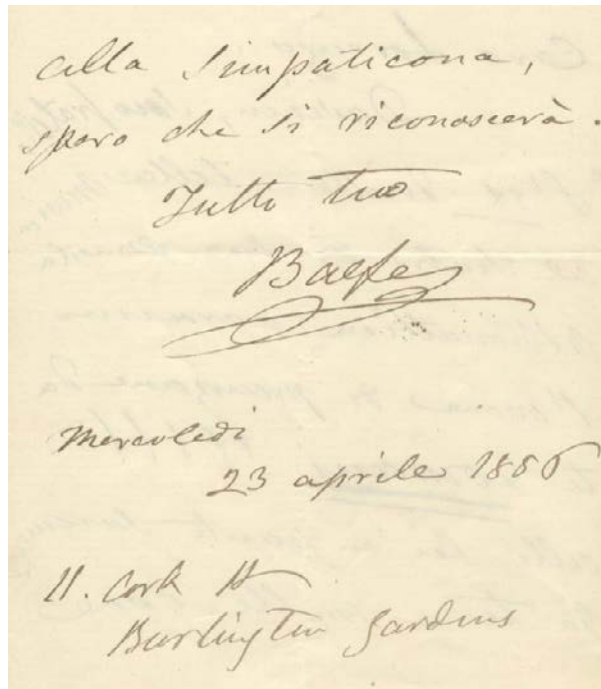 alla Simpaticona,
spero che si riconoscerà.
Tutto tuo
Balfe
Mercoledì
23 aprile 1856
11. Cork St
Burlington Gardens